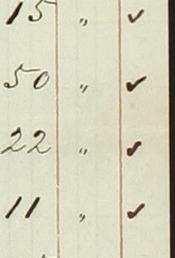 15 " ✓
50 " ✓
22 " ✓
11 " ✓